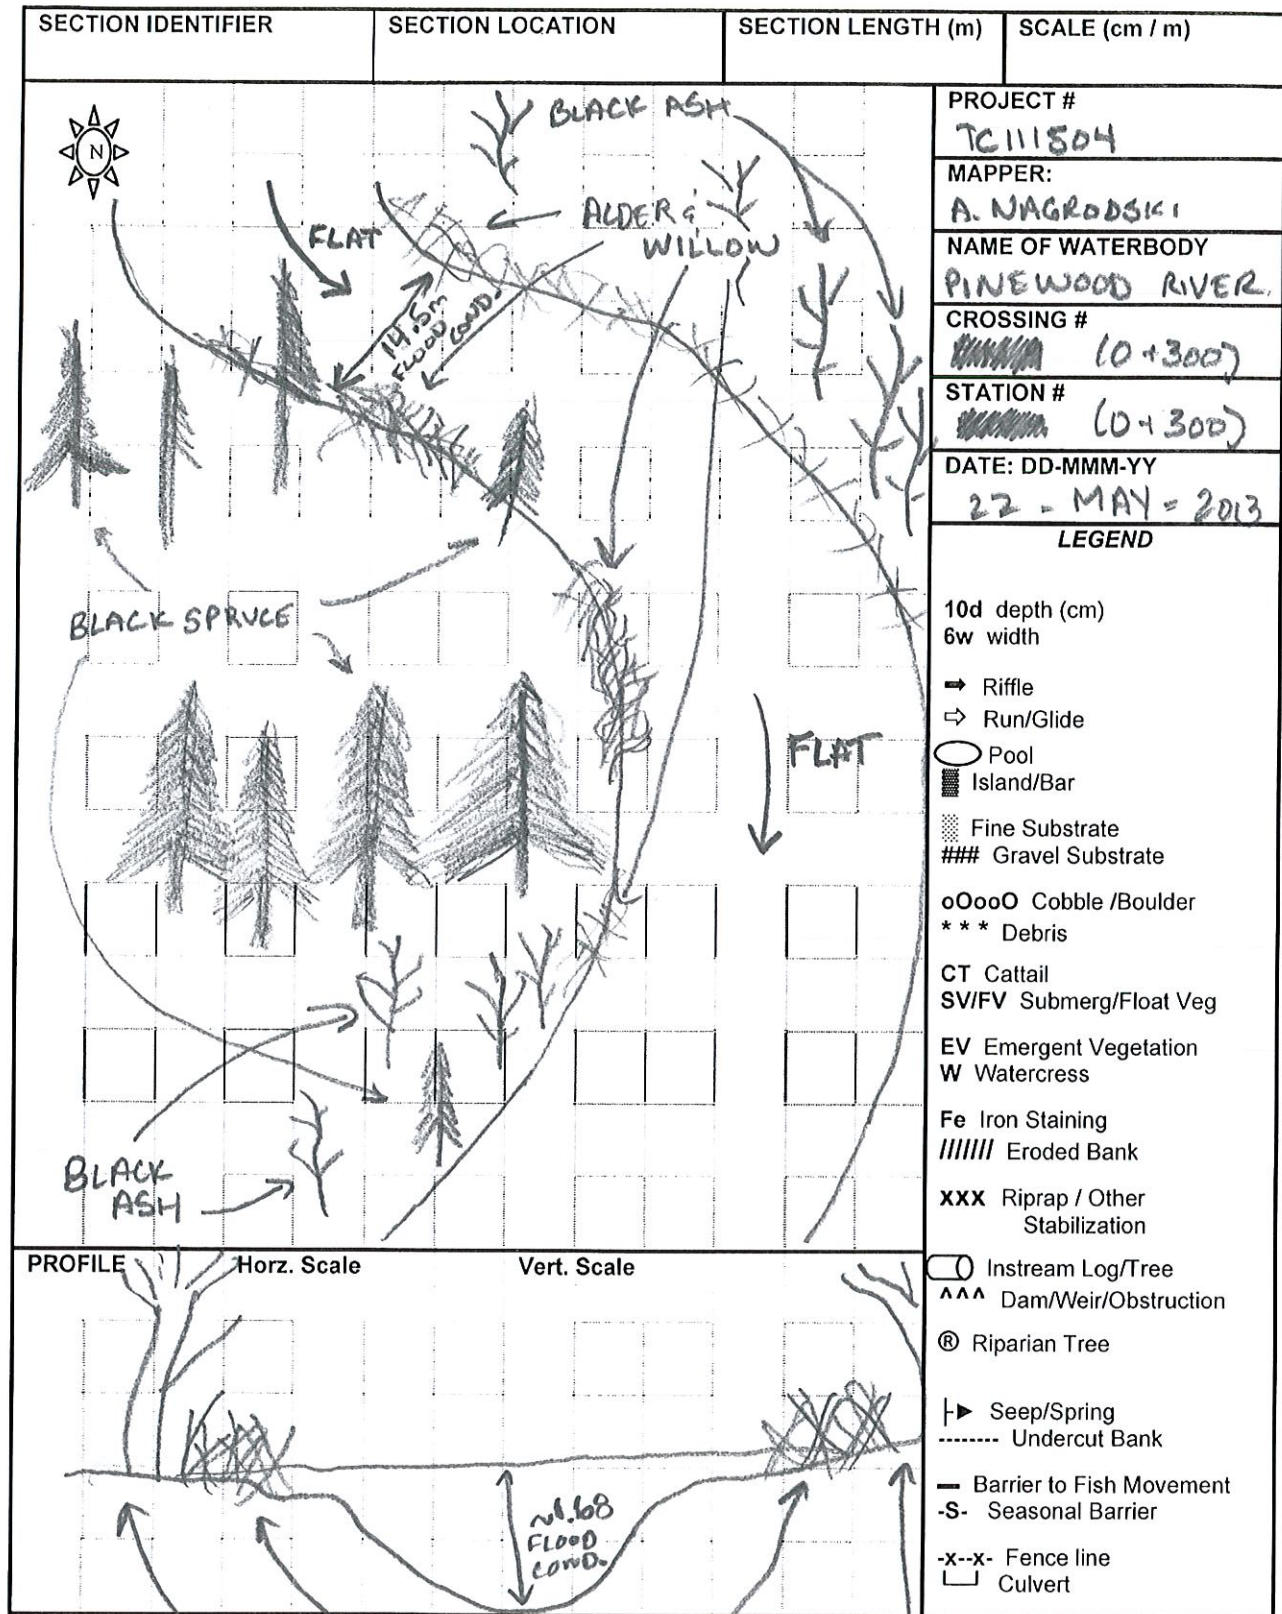 SECTION IDENTIFIER
SECTION LOCATION
SECTION LENGTH (m)
SCALE (cm / m)
N
BLACK ASH
ALDER &
WILLOW
FLAT
14.5m
FLOOD COND.
BLACK SPRUCE
FLAT
BLACK
ASH
PROJECT #
TC111504
MAPPER:
A. NAGRODSKI
NAME OF WATERBODY
PINEWOOD RIVER
CROSSING #
(0+300)
STATION #
(0+300)
DATE: DD-MMM-YY
22 - MAY - 2013
LEGEND
10d depth (cm)
6w width
Riffle
Run/Glide
Pool
Island/Bar
Fine Substrate
### Gravel Substrate
oOooO Cobble /Boulder
* * * Debris
CT Cattail
SV/FV Submerg/Float Veg
EV Emergent Vegetation
W Watercress
Fe Iron Staining
/////// Eroded Bank
XXX Riprap / Other
Stabilization
Instream Log/Tree
^^^ Dam/Weir/Obstruction
® Riparian Tree
Seep/Spring
-------- Undercut Bank
Barrier to Fish Movement
-S- Seasonal Barrier
-x--x- Fence line
Culvert
PROFILE
Horz. Scale
Vert. Scale
FLOOD
COND.